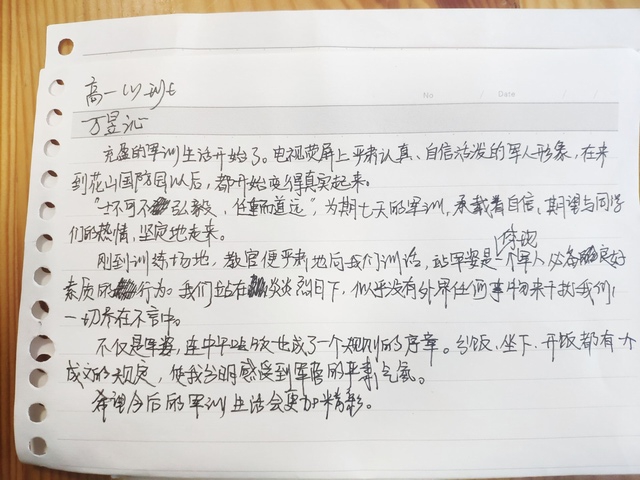 高一(1)班
万昱沁
No / Date / /
充盈的军训生活开始了。电视荧屏上严肃认真、自信活泼的军人形象，在来
到花山国防园以后，都开始变得真实起来。
"士不可不弘毅，任重而道远"，为期七天的军训，承载着自信、期望与同学
们的热情，坚定地走来。
体现
刚到训练场地，教官便严肃地向我们训话，站军姿是一个军人必备良好
素质的行为。我们站在炎炎烈日下，似乎没有外界任何事物来干扰我们，
一切尽在不言中。
不仅是军姿，连中午吃饭也成了一个规则的序章。分饭、坐下、开饭都有不
成文的规定，使我分明感受到军营的严肃气氛。
希望今后的军训生活会更加精彩。